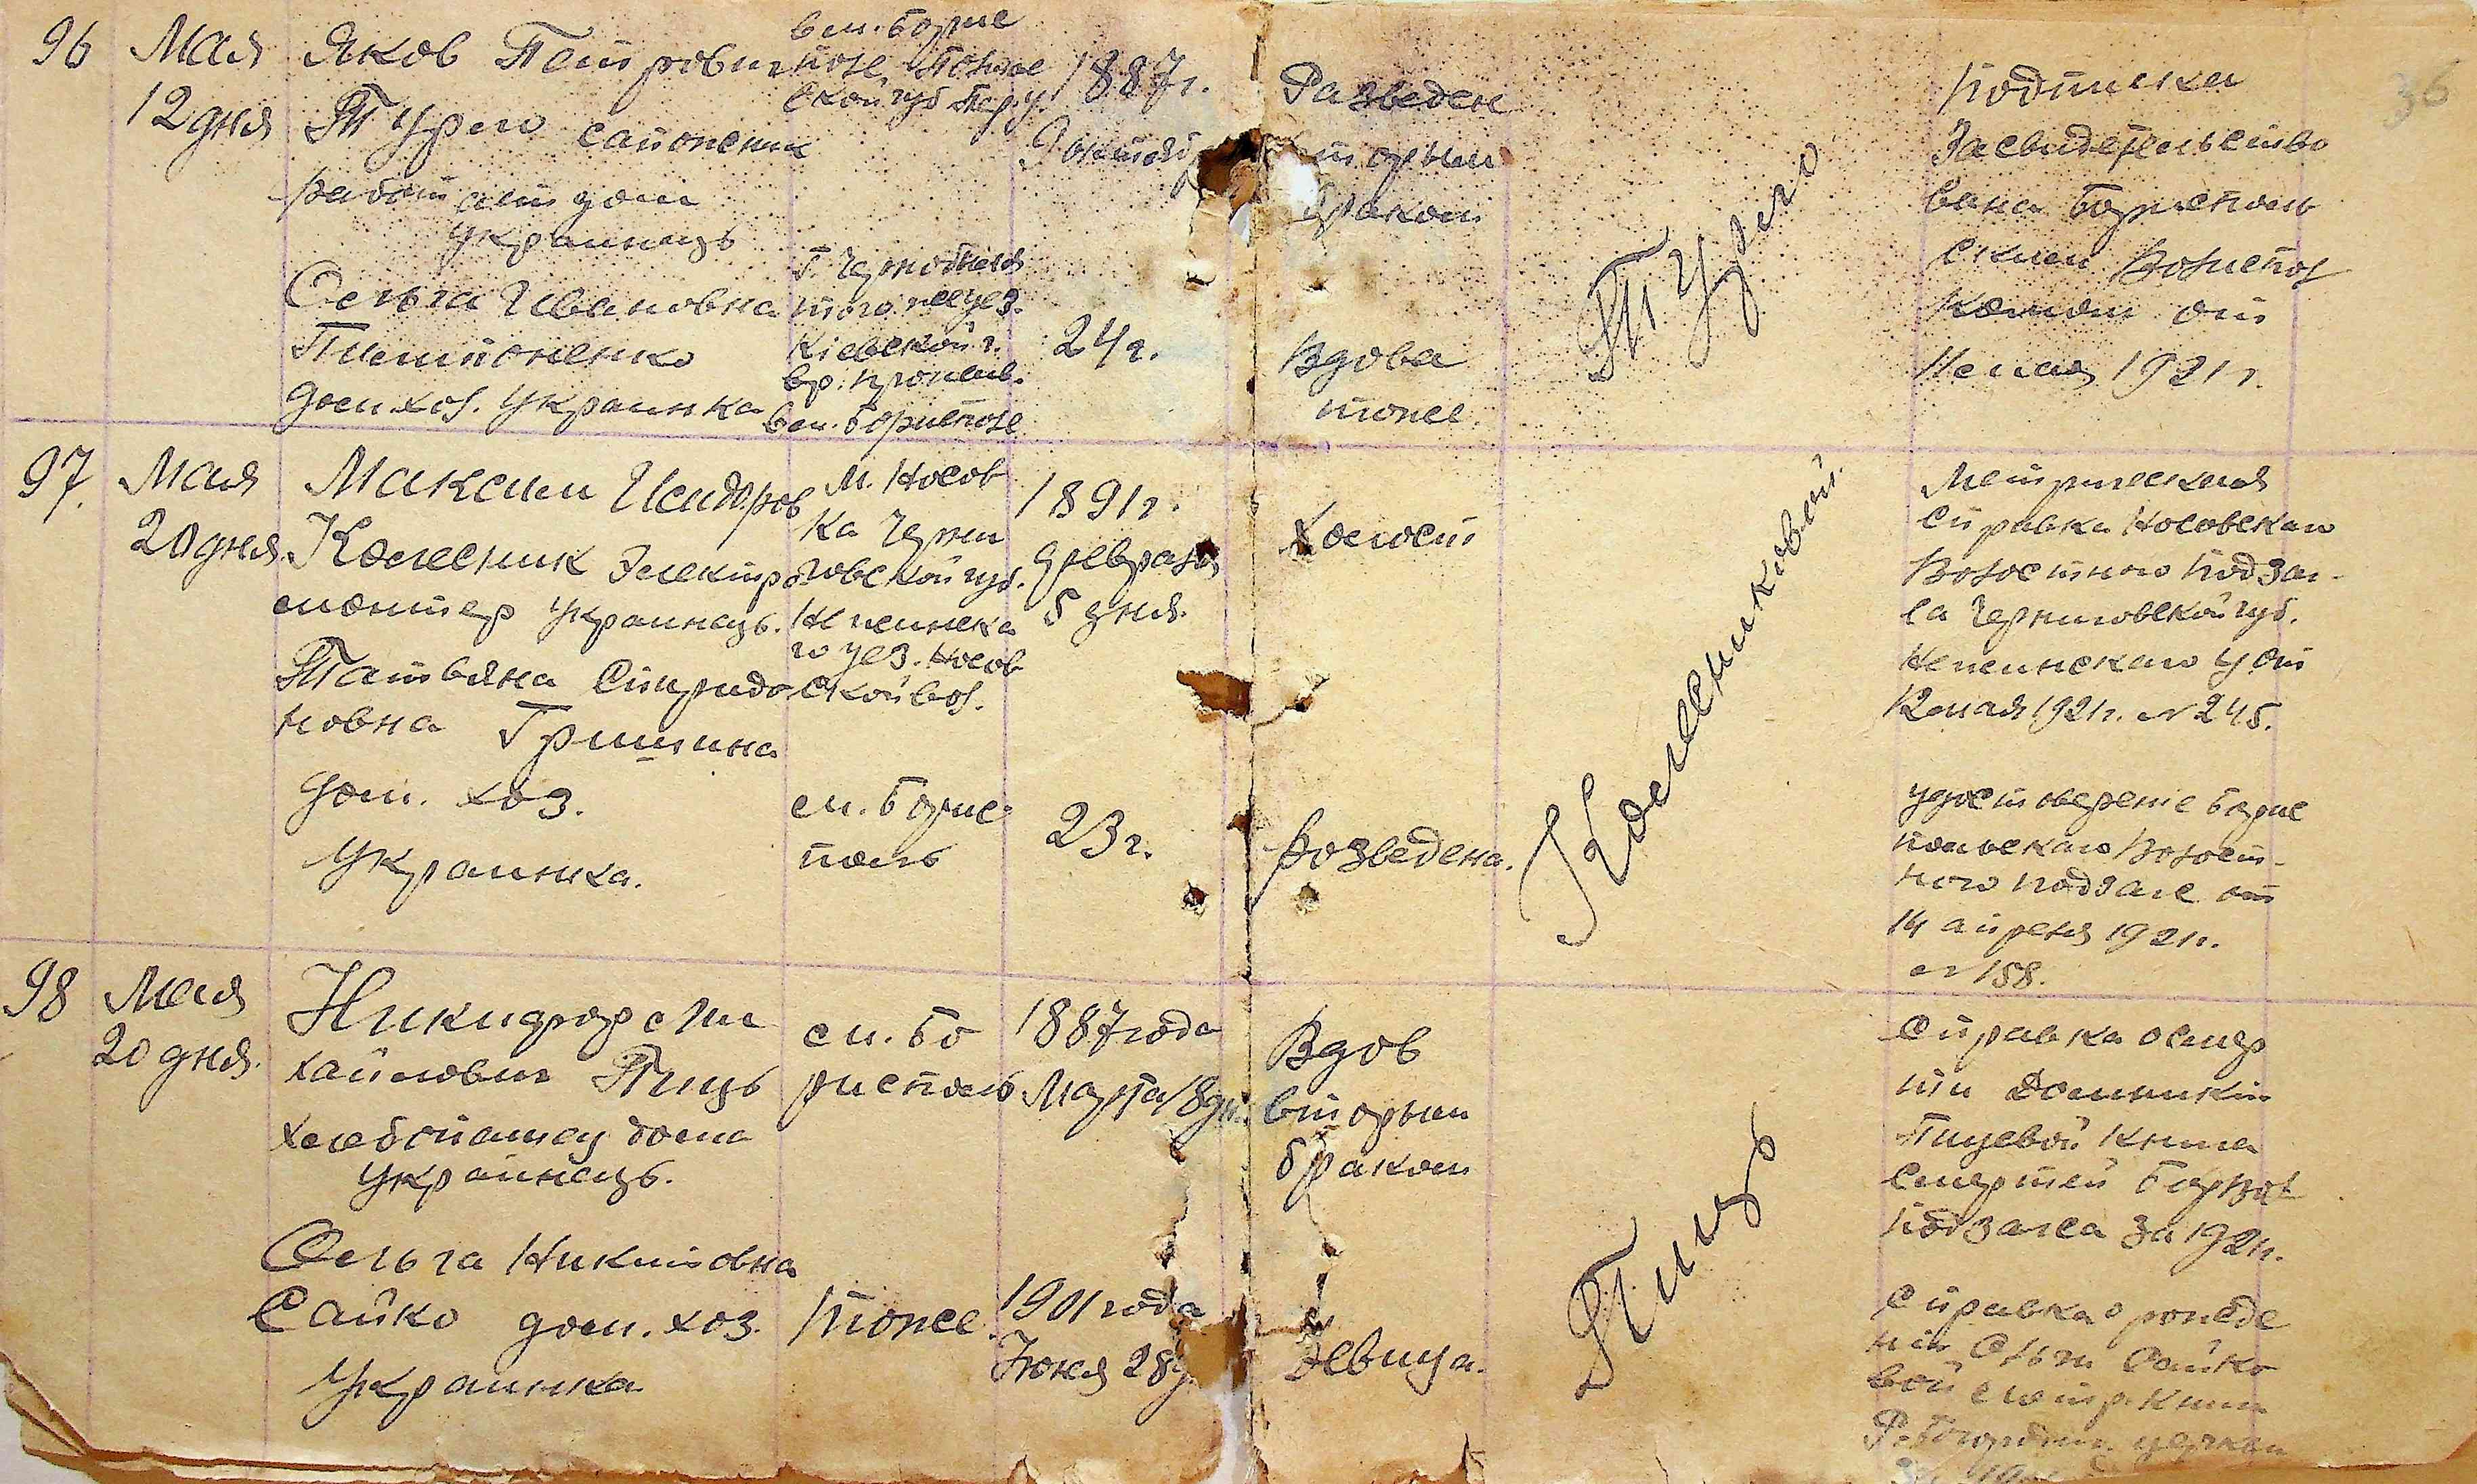 36
96
Мая
12 дня
Яков Петрович
Турло сапожник
работ
украинецъ
в м. Борис
поле Полтав
ской губ Пер.у.
1887 г.
9 октяб
Разведен
вторым
браком
Турло
Подписка
Засвидетельство
вана Бориспольс
ким Волиспол
комом от
мая 1921 г.
Ольга Ивановна
Пистоненко
дом.хоз. Украинка
Г. Чернобыля
того же уез.
Кіевской г.
вр. прожив.
в м. Борисполе
24 г.
Вдова
тоже
97.
Мая
20 дня.
Максим Исидоров
Колесник Электро
монтер украинецъ.
м. Носов
ка Черни
говской губ.
Нежинска
го уез. Носов
ской вол.
1891 г.
февраля
5 дня.
Холост
Колесниковой.
Метрическая
справка Носовскаго
Волостного Подзаг-
са Черниговской губ.
Нежинскаго у от
12 мая 1921 г. № 245.
Татьяна Спиридо
новна Гришина
дом. хоз.
Украинка.
м. Борис
поль
23 г.
Розведена.
удостоверение Борис
польскаго Волост-
ного подзагс от
14 апреля 1921 г.
№ 158.
98
Мая
20 дня.
Никифор Ми
хайлович Тицъ
хлебопашец дома
украинецъ.
м. Бо
рисполь
1887 года
Марта 18 дн.
Вдов
вторым
браком
Тицъ
Справка о смер
ти Домникіи
Тицевой книга
смертей Бор Вол
подзагса за 1921 г.
Ольга Никитовна
Сайко дом. хоз.
Украинка
тоже
1901 года
Июня 28 д.
Девица.
Справка о рожде
нии Ольги Сайко
вой с метр. книги
Р. Богородич. церкви